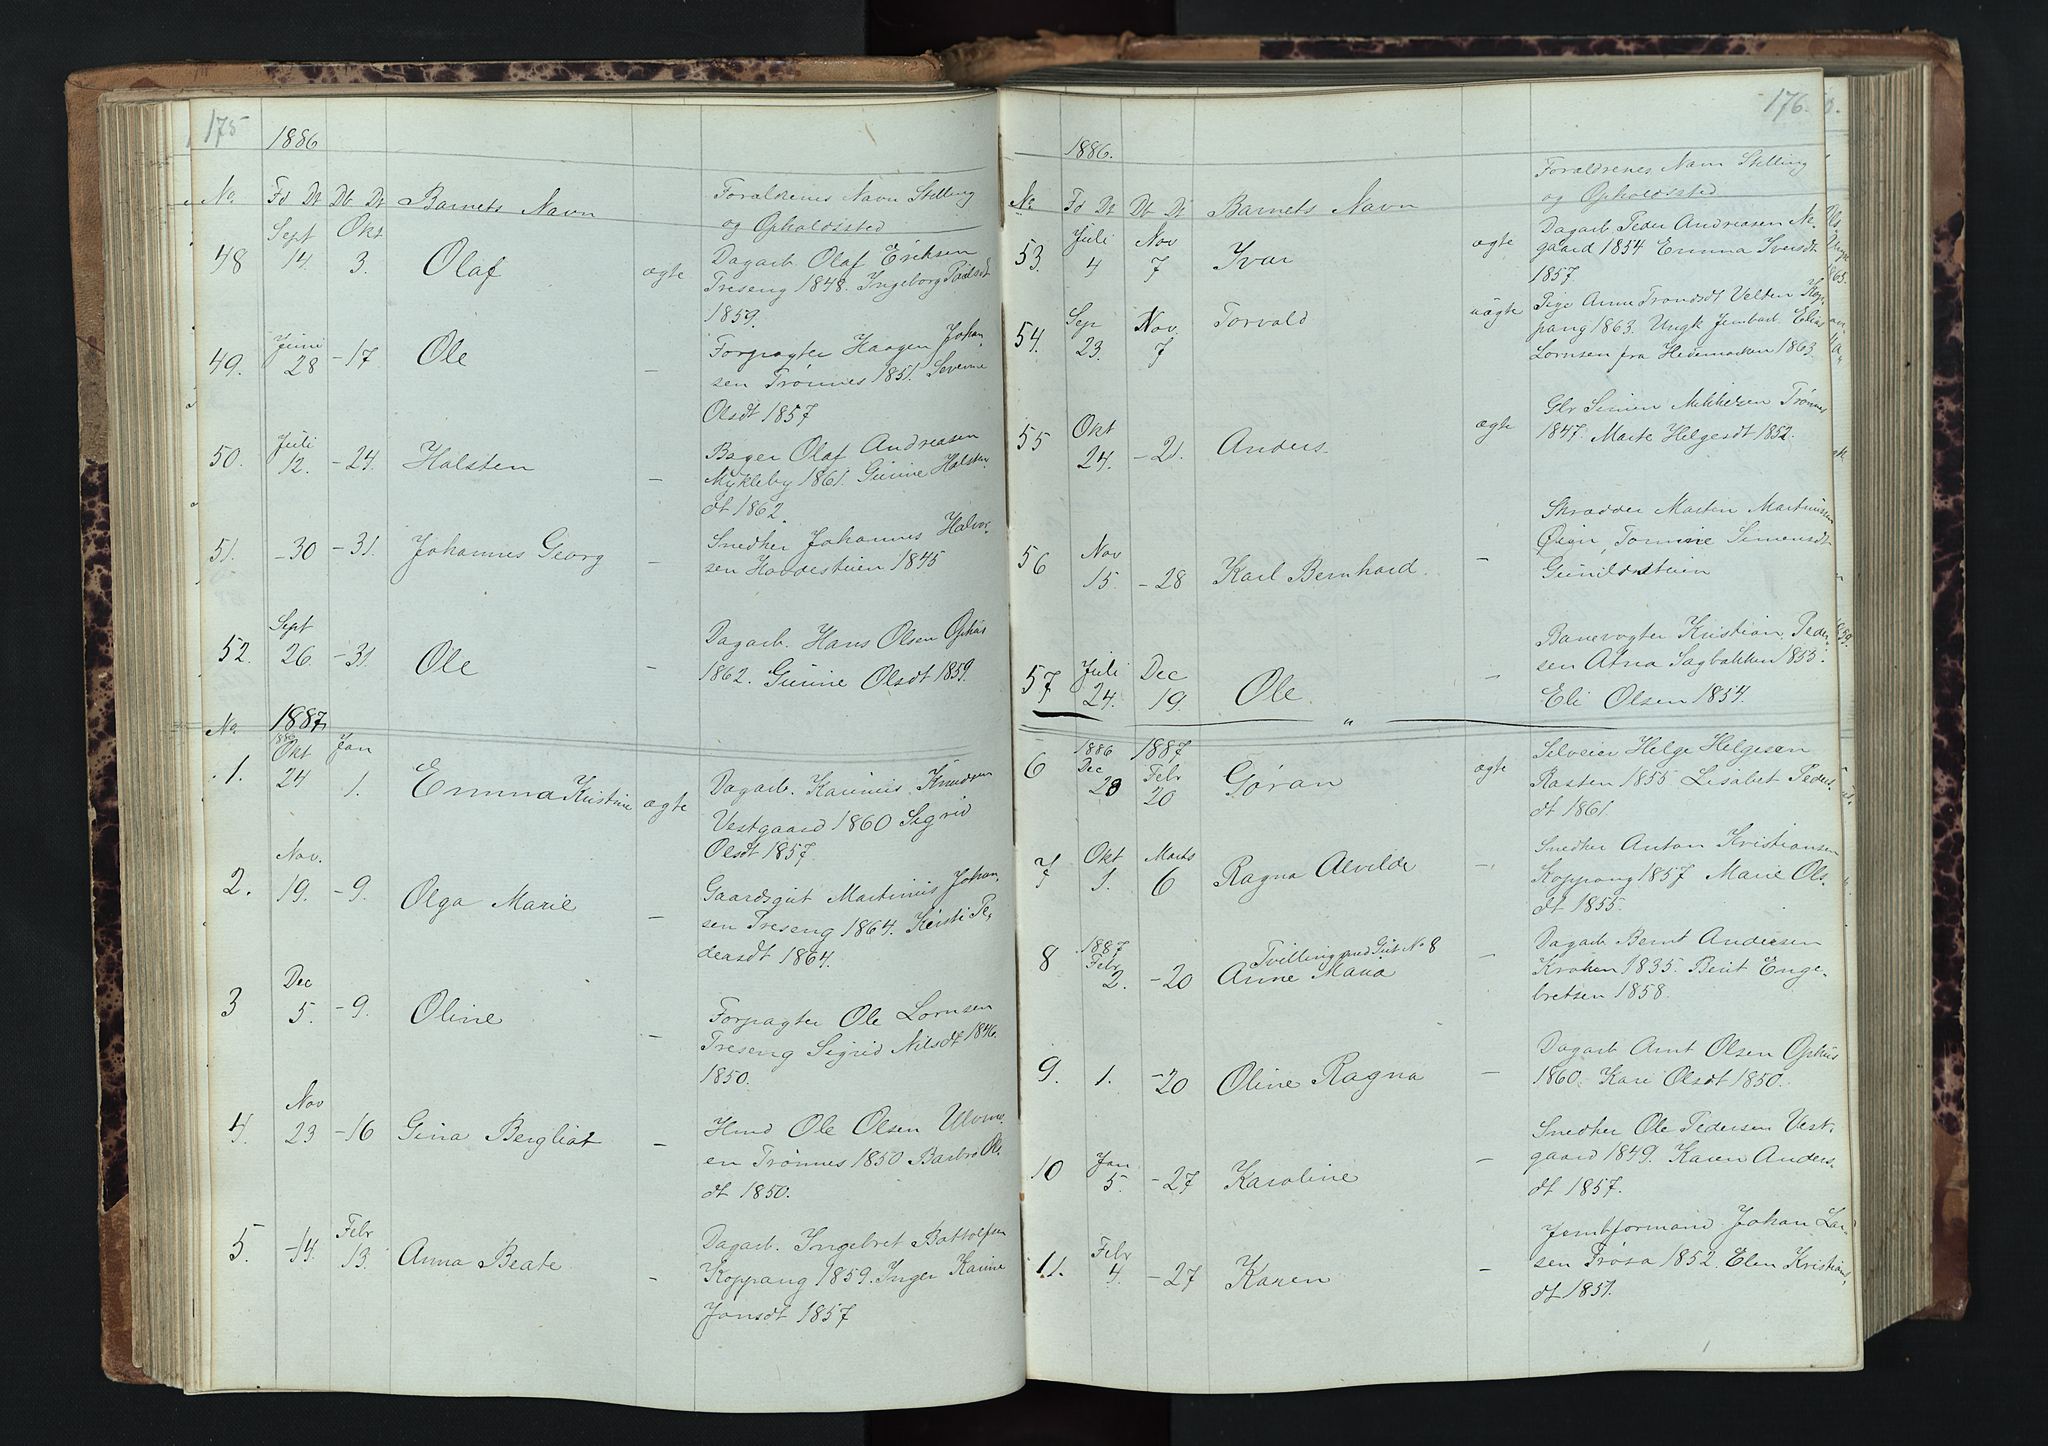 175
1886
No. Fd Dt Db Dt Barnets Navn Forældrenes Navn Stilling
og Opholdssted
Sept Okt
48 14. 3. Olaf ægte Dagarb Olaf Eriksen
Treseng 1848. Ingeborg Paalsdt
1859.
Juni
49. 28 -17. Ole - Forpagter Haagen Johan
sen Trønnes 1851. Severine
Olsdt 1857
Juli
50. 12. -24. Halsten - Bager Olaf Andreasen
Mykleby 1861. Gunine Halsten
dt 1862.
51. -30 -31. Johannes Georg - Snedker Johannes Halvor
sen Hovdestuen 1845
Sept
52. 26. -31. Ole - Dagarb. Hans Olsen Ophus
1862. Gunine Olsdt 1859.
No. 1887
Okt Jan
1. 24 1. Emma Kristine ægte Dagarb. Karinius Knudsen
Vestgaard 1860 Sigrid
Olsdt 1857.
Nov.
2. 19. -9. Olga Marie - Gaardsgut Martinius Johan,
sen Treseng 1864. Kersti Pe,
dersdt 1864.
Dec
3 5. -9. Oline - Forpagter Ole Lornsen
Treseng Sigrid Nilsdt 1846.
1850.
Nov
4. 23 -16 Gina Bergliot - Hmd Ole Olsen Ulvmo
en Trønnes 1850 Barbro Ols
dt 1850.
Febr
5. -14. 13. Anna Beate - Dagarb. Ingebret Battolfsen
Koppang 1859. Inger Karine
Jonsdt 1857
176.
1886.
Forældrenes Navn Stilling
No. Fd Dt Db Dt Barnets Navn og Opholdssted
Juli Nov
53. 4 7 Ivar ægte Dagarb. Peder Andreasen Ne
gaard 1854 Emma Iversdt
1857.
Sep Nov.
54. 23. 7 Torvald uægte Pige Anne Trondsdt Velten Kop
pang 1863. Ungk Jernbarb. Elias
Lornsen fra Hedemarken 1863.
Okt
55 24. -21. Anders. ægte Glr Simen Mikkelsen Trønnes
1847. Marte Helgesdt 1852.
Nov
56 15 -28 Karl Bernhard. - Skrædder Morten Martinussen
Øien, Tomine Simensdt
Gunildstuen
Juli Dec
57 24. 19. Ole - Banevogter Kristian Peder
sen Atna Sagbakken 1855.
Eli Olsen 1854.
"
1886 1887
Dec Febr
6 28 20 Gøran ægte Selveier Helge Helgesen
Rasten 1855 Lisabet Peders
dt 1861.
Okt Marts
7 1. 6 Ragna Alvilde - Snedker Anton Kristiansen
Koppang 1857 Marie Ols-
dt 1855.
1887 Tvilling med Gut No 8
Febr
8 2. -20 Anne Maria - Dagarb Bernt Andersen
Kroken 1835. Berit Enge-
bretsen 1858.
9. 1. -20 Oline Ragna - Dagarb Arnt Olsen Ophus
1860. Kari Olsdt 1850.
Jan
10 5. -27 Karoline - Snedker Ole Pedersen Vest,
gaard 1849. Karen Anders.
dt 1857.
Febr
11. 4. -27 Karen - Jernbformand Johan Lar
sen Trøsa 1852. Elen Kristians,
dt 1851.